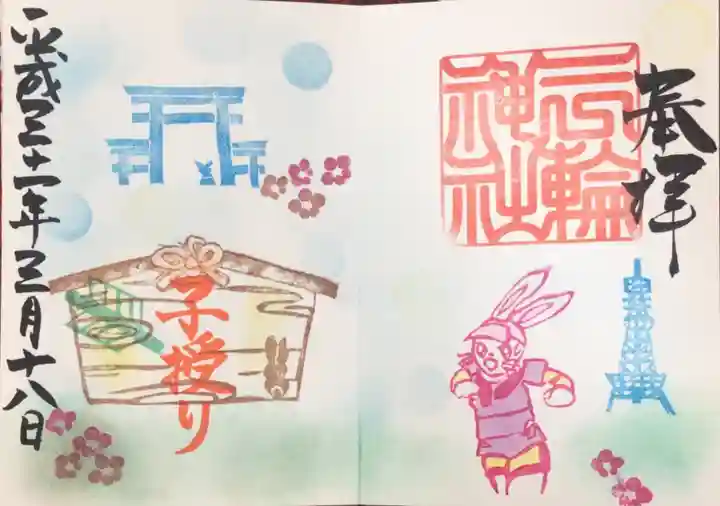 奉拝
三輪
神社
子授り
平成三十一年三月十八日